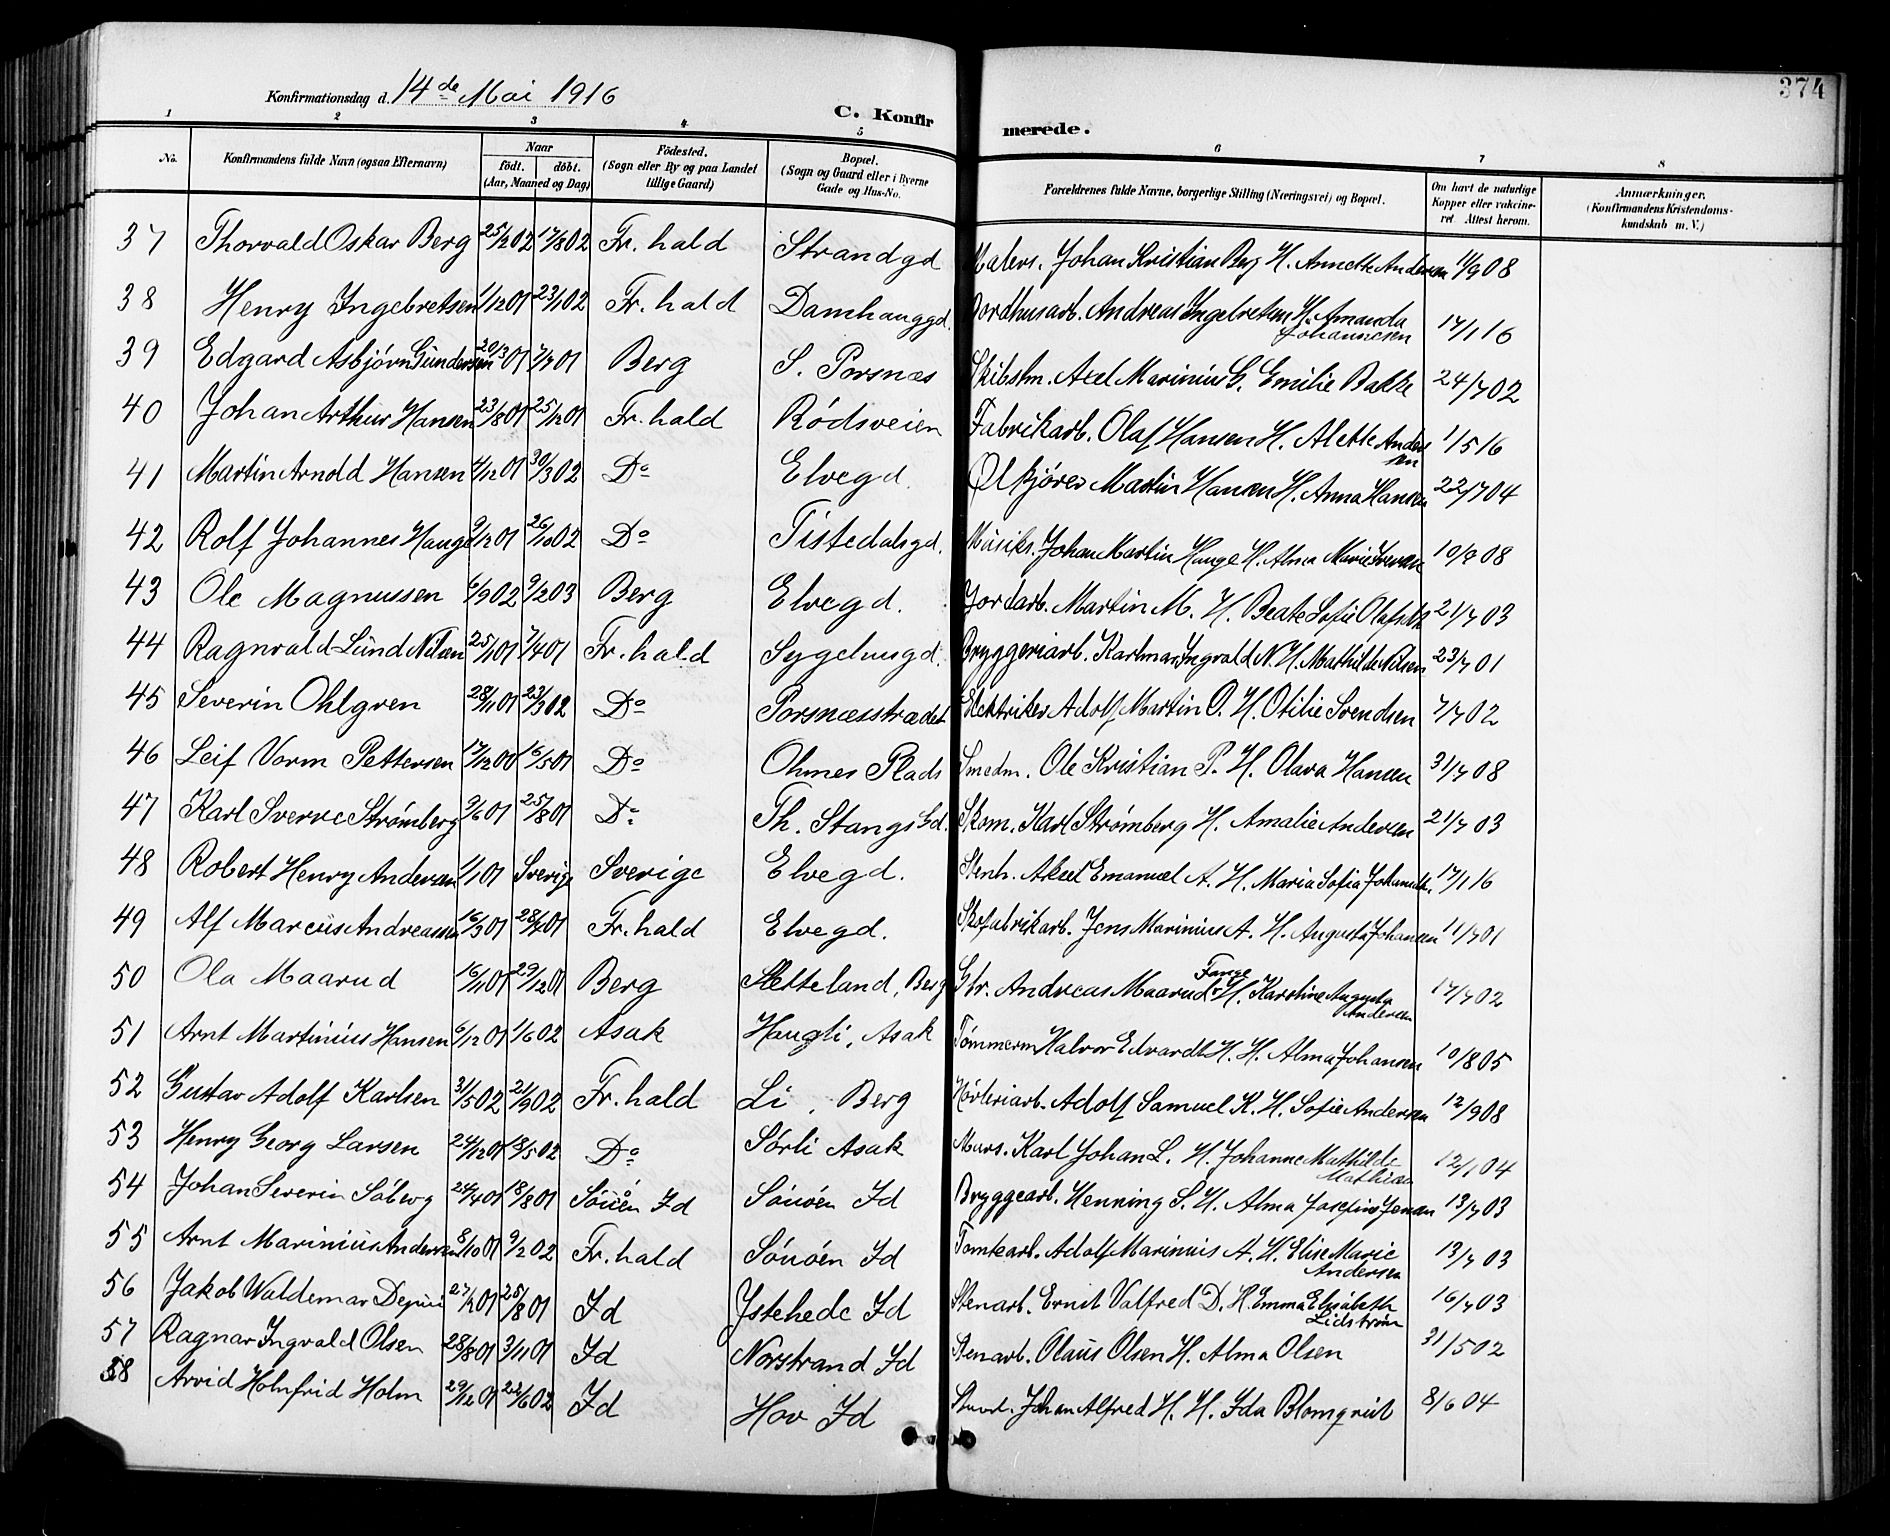 374
Konfirmationsdag d. 14de Mai 1916
C. Konfirmerede.
1 2 3 4 5 6 7 8
No. Konfirmandens fulde Navn (ogsaa Efternavn) Naar födt. döbt. (Aar, Maaned og Dag) Födested. (Sogn eller By og paa Landet tillige Gaard) Bopæl. (Sogn og Gaard eller i Byerne Gade og Hus-No. Forældrenes fulde Navne, borgerlige Stilling (Næringsvei) og Bopæl. Om havt de naturlige Kopper eller vakcineret. Attest herom. Anmærkninger. (Konfirmandens Kristendomskundskab m. V.)
37 Thorvald Oskar Berg 25/2 02 17/8 02 Fr. hald Strandgd Malers. Johan Kristian Berg H. Annette Andersen 11/9 08
38 Henry Ingebretsen 1/12 01 23/1 02 Fr. hald Damhauggd. Andreas Ingebretsen H. Amanda Johannesen 17/1 16
39 Edgard Asbjørn Gundersen 20/3 01 7/7 01 Berg S. Porsnæs Skibstm. Axel Marinius G. Emilie Bakke 24/7 02
40 Johan Arthur Hansen 23/8 01 25/12 01 Fr. hald Rödsveien Fabrikarb. Olaf Hansen H. Alette Andersen 1/5 16
41 Martin Arnold Hansen 4/12 01 30/3 02 Do Elvegd. Ølkjører Martin Hansen H. Anna Hansen 22/7 04
42 Rolf Johannes Hauge 9/12 01 26/10 02 Do Tistedalsgd. Musiks. Johan Martin Hauge H. Alma Marie 10/9 08
43 Ole Magnussen 6/9 02 9/2 03 Berg Elvegd. Jordarb. Martin M. H. Beate Sofie 21/7 03
44 Ragnvald Lund Nilsen 25/1 01 7/4 01 Fr. hald Sygehusgd. Bryggeriarb. Karlmar Ingvald N. H. Mathilde Nilsen 23/7 01
45 Severin Ohlgren 28/11 01 23/3 02 Do Porsnæsstrædet Elektriker Adolf Martin O. H. Otilie Svendsen 7/7 02
46 Leif Vorm Pettersen 17/12 00 16/5 01 Do Ohmes Plads Smedm. Ole Kristian P. H. Olava Hansen 31/7 08
47 Karl Sverre Strömberg 9/6 01 25/8 01 Do Th. Stangs Gd. Skom. Karl Strömberg H. Amalie Andersen 21/7 03
48 Robert Henry Andersen 1/1 01 Sverige Sverige Elvegd. Stenh. Aksel Emanuel A. H. Maria Sofia 17/1 16
49 Alf Marcus Andreassen 16/3 01 28/7 01 Fr. hald Elvegd. Skofabrikarb. Jens Marinius A. H. Augusta Johansen 11/7 01
50 Ola Maarud 16/11 01 29/12 01 Berg Sletteland, Berg Gbr. Andreas Maarud Fange H. Karoline Augusta Andersen 17/7 02
51 Arnt Martinius Hansen 6/12 01 1/6 02 Asak Haugli, Asak Tømmerm Halvor Edvardt H. H. Alma Johansen 10/8 05
52 Gustav Adolf Karlsen 31/5 02 21/9 02 Fr. hald Li, Berg Hövleriarb. Adolf Samuel K. H. Sofie Andersen 12/9 08
53 Henry Georg Larsen 24/12 01 18/5 02 Do Sörli Asak Murs. Karl Johan L. H. Johanne Mathilde 12/1 04
54 Johan Severin Söberg 24/4 01 18/8 01 Id Id Bryggearb. Henning S. H. Alma Josefine Jensen 13/7 03
55 Arnt Marinius Andersen 8/10 01 9/2 02 Fr. hald Id Tomtearb. Adolf Marinius A. H. Elise Marie Andersen 13/7 03
56 Jakob Waldemar 27/1 01 25/8 01 Id Ystehede Id Stenarb. Ernst Valfred D. H. Emma Elisabeth Lidström 16/7 03
57 Ragnar Ingvald Olsen 28/8 01 3/11 01 Id Norstrand Id Stenarb. Olaus Olsen H. Alma Olsen 31/5 02
58 Arvid Holmfrid Holm 29/12 01 22/6 02 Id Hov Id Johan Alfred H. H. Ida Blomqvist 8/6 04